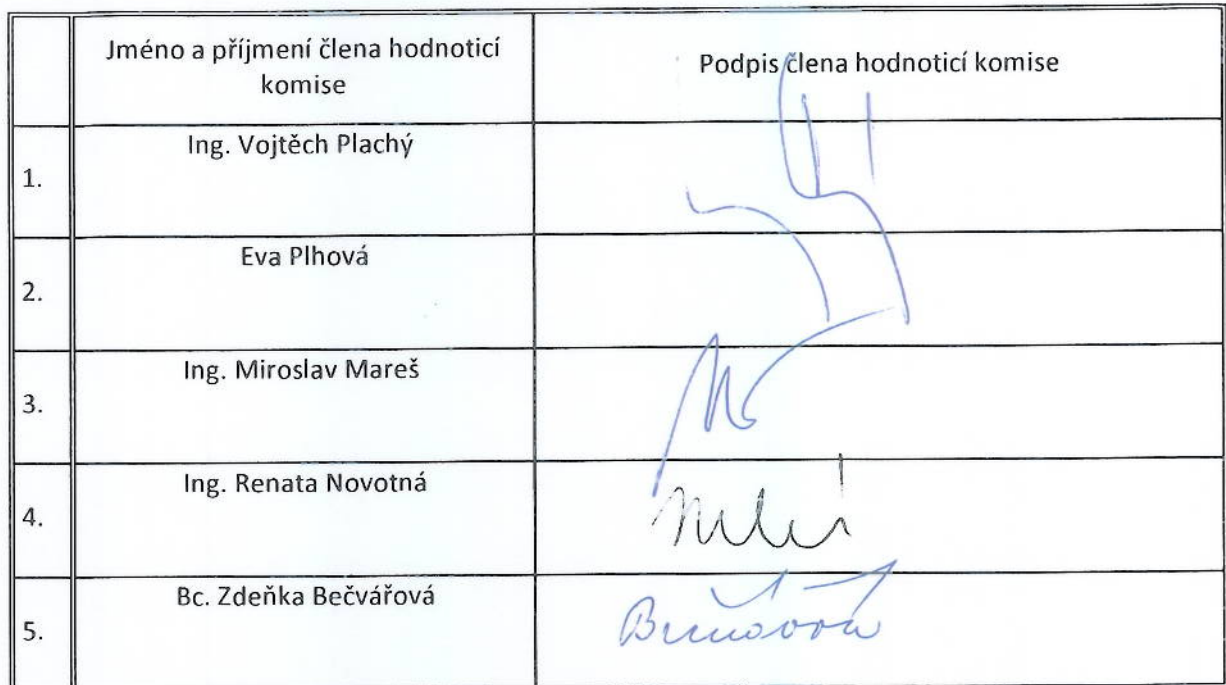 Jméno a příjmení člena hodnoticí
komise
Podpis člena hodnoticí komise
1.
Ing. Vojtěch Plachý
2.
Eva Plhová
3.
Ing. Miroslav Mareš
4.
Ing. Renata Novotná
5.
Bc. Zdeňka Bečvářová